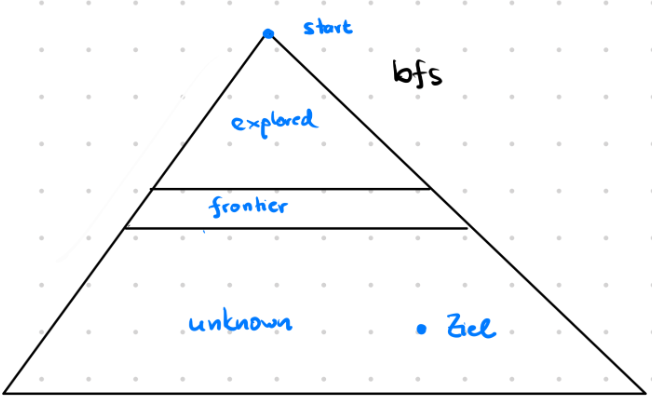 start
bfs
explored
frontier
unknown
Ziel